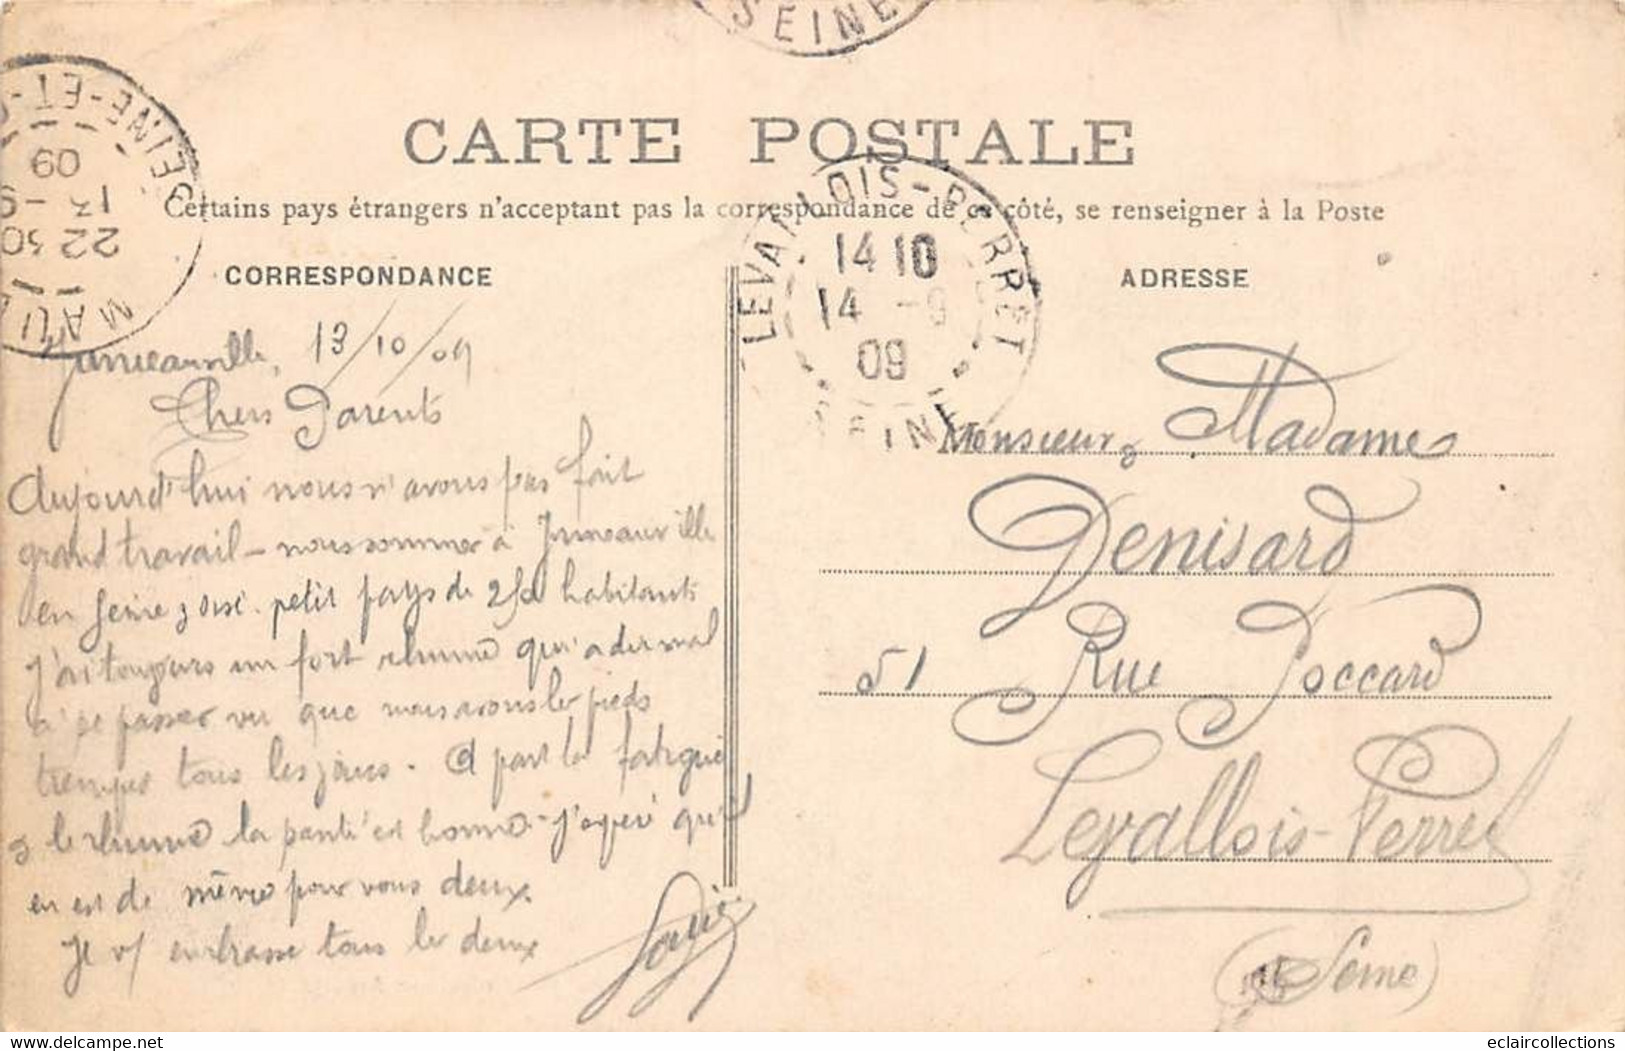 SEINE
SEINE-ET-O
09
13 -9
22 30
MAU
CARTE POSTALE
Certains pays étrangers n'acceptant pas la correspondance de ce côté, se renseigner à la Poste
LEVALLOIS-PERRET
14 10
14 -9
09
SEINE
CORRESPONDANCE
13/10/09
Chers Parents
Aujourd'hui nous n'avons pas fait
grand travail - nous sommes à Jumeauville
en Seine & Oise. petit pays de 250 habitants
J'ai toujours un fort rhume qui a du mal
à se passer vu que nous avons les pieds
trempés tous les jours. A part la fatigue
& le rhume la santé est bonne - j'espère qu'il
en est de même pour vous deux.
Je v/ embrasse tous les deux
ADRESSE
Monsieur & Madame
Denisard
51 Rue Poccard
Levallois-Perret
(Seine)
eclaircollections